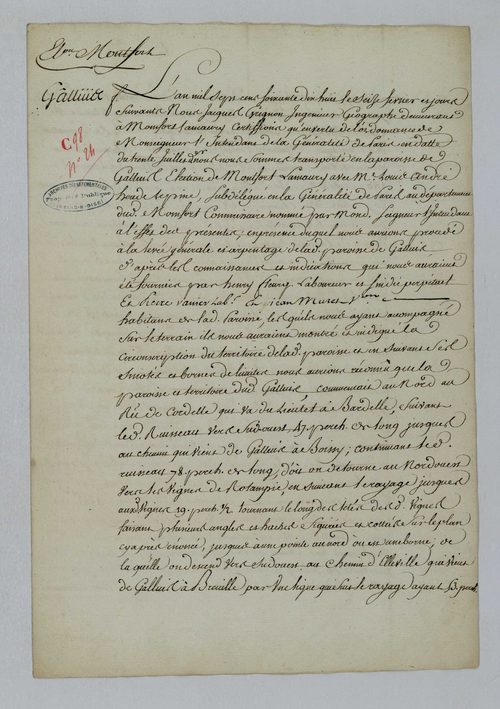 Eon Montfort
Galluis
C 98
n° 24
ARCHIVES DÉPARTEMENTALES
L'an mil sept cens soixante dix huit le seize fevrier et jours
suivants Nous Jacques Grignon Ingenieur Geographe demeurant
à Monfort Lamaury Certiffions qu'en vertu de lordonnance de
Monseigneur l'Intendant de la Généralité de Paris en datte
du trente Juillet nous nous sommes transporté en la paroisse de
Galluis Election de Montfort Lamaury avec Mr. Louis André
subdélégué en la Généralité de Paris au departement
dud. Monfort Commissaire nommé par Mond. Seigneur Intendant
à l'effet des presentes; en presence duquel nous aurions procedé
à la levé générale et arpentage de lad. paroisse de Galluis
d'après les connaissances et indications qui nous auraient
été fournies par henry fleury Laboureur et sindic perpetuel
Et Pierre Labr. et Jean Vigon
habitans de lad. Paroisse, lesquels nous ayant accompagné
sur le terrain ils nous auraient montré et indiqué la
circonscription du territoire de lad. paroisse et en suivant ses
et bornes de limites nous aurions reconnu que la d.
paroisse et territoire dud Galluis commencait au Nord au
Ru de Cordelle qui va du Lieutel à Bardelle, suivant
led. Ruisseau vers Sudouest 47 perch. de long jusques
au chemin qui vient de Galluis à Boissy; continuant led.
ruisseau 78 perch. de long, d'où on détourne au Nordouest
vers les vignes de en suivant le rayage jusques
auxd vignes 19 perch. ½ tournant le long des d. vignes
faisant plusieurs angles et haches figurées et cottées sur le plan
cy après énoncé, jusques à une pointe au nord où est une borne; de
laquelle on descend vers Sudouest au Chemin d'Elleville qui vient
de Galluis à par une ligne qui suit le rayage ayant perch.